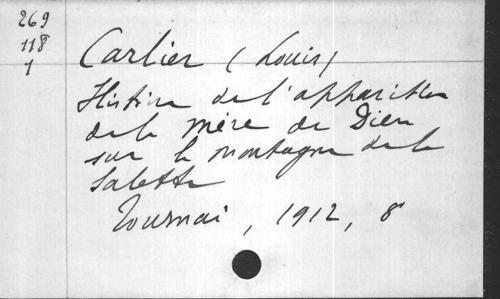 269
118
1
Carlier (Louis)
Histoire de l'apparition
de la mère de Dieu
sur la montagne de la
Salette
Tournai, 1912, 8°